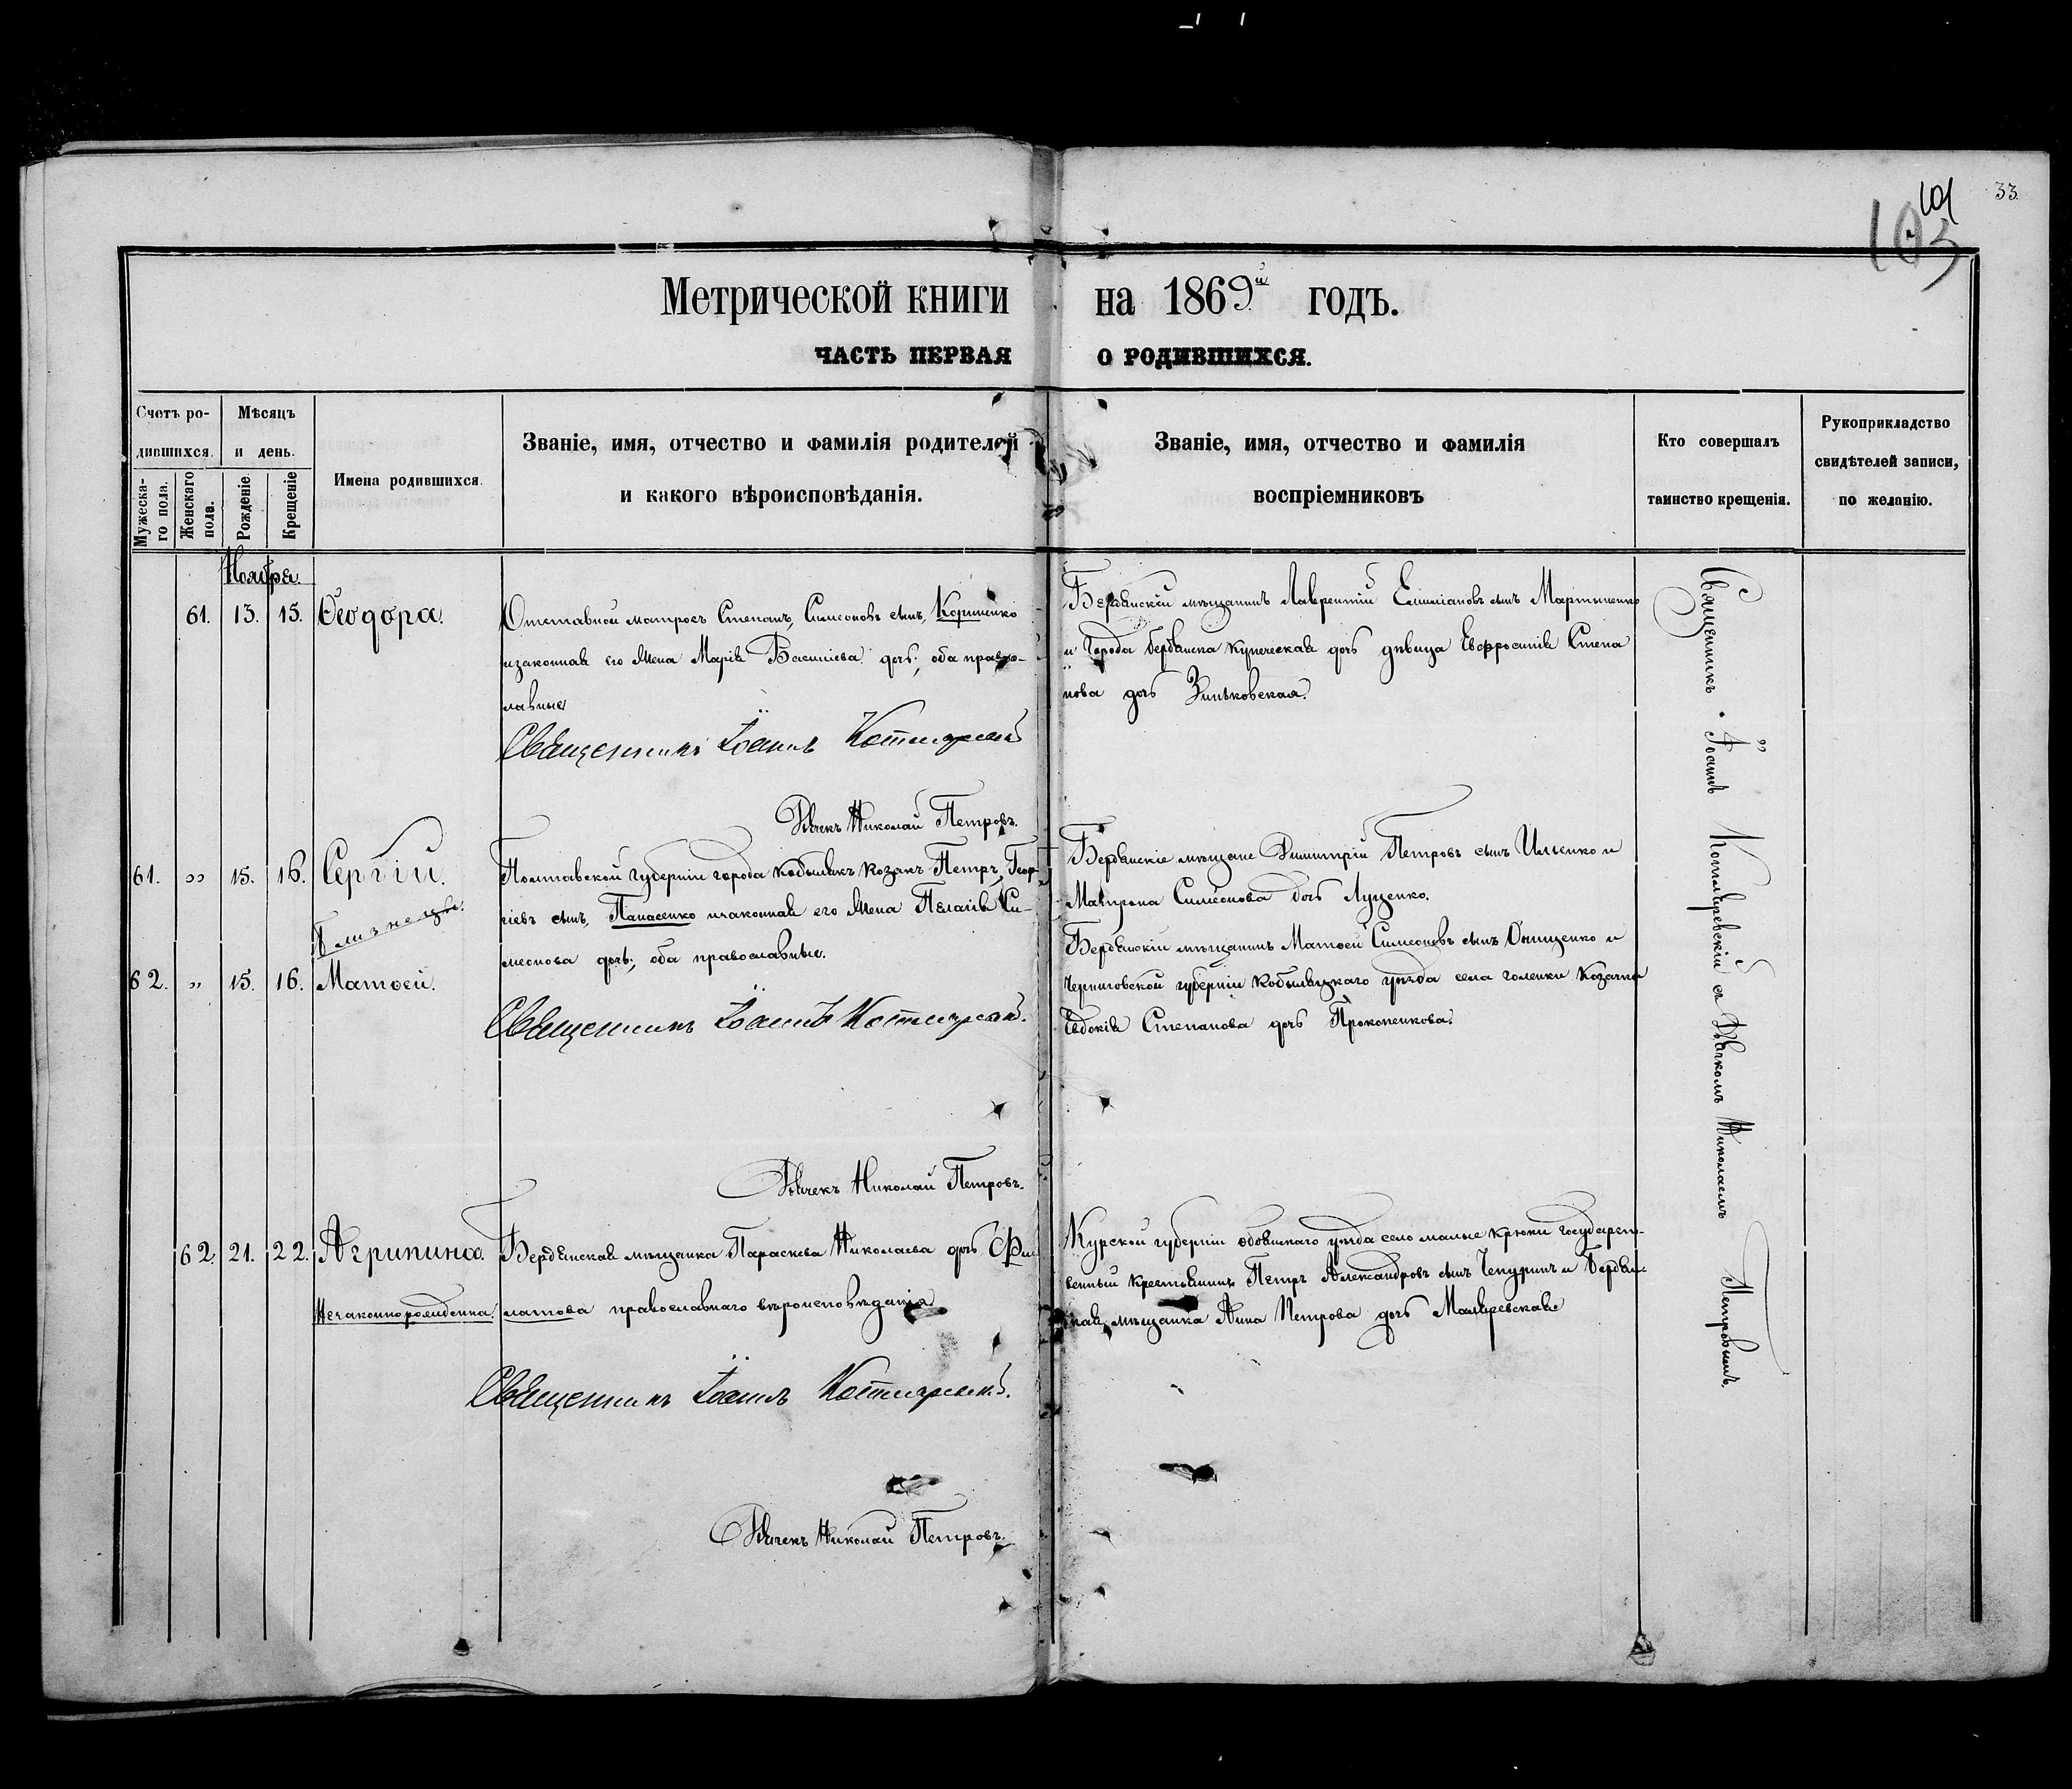 33.
101
103
Метрической книги на 1869й годъ.
ЧАСТЬ ПЕРВАЯ О РОДИВШИХСЯ.
Счетъ ро-
дившихся.
Мужеска-
го пола.
Женскаго
пола.
Мѣсяцъ
и день.
Рожденіе.
Крещеніе
Имена родившихся.
Званіе, имя, отчество и фамилія родителей
и какого вѣроисповѣданія.
Званіе, имя, отчество и фамилія
воспріемниковъ
Кто совершалъ
таинство крещенія.
Рукоприкладство
свидѣтелей записи,
по желанію.
Ноября.
61. 13. 15. Ѳеодора.
Отставной матросъ Степанъ, Симеоновъ сынъ,
изаконная его жена Марія Василіева дочь; оба правос-
лавные
Священникъ Іоаннъ Котляревскій
Дьячекъ Николай Петровъ.
Бердянскій мѣщанинъ Лаврентій Емиліановъ сынъ Мартыненко
и города Бердянска купеческая дочь дѣвица Евфросинія Степа
нова дочь Зиньковская.
61. „ 15. 16. Сергій.
Близнецы.
62. „ 15. 16. Матѳей.
Полтавской губерніи города Кобылякъ козакъ Петръ, Геор-
гіевъ сынъ, Панасенко изаконная его жена Пелагія Си-
меонова дочь; оба православные.
Священникъ Іоаннъ Котляревскій.
Дьячекъ Николай Петровъ.
Бердянскіе мѣщане Димитрій Петровъ сынъ Ильенко и
Матрона Симеонова дочь Луценко.
Бердянскій мѣщанинъ Матѳей Симеоновъ сынъ Онищенко и
Черниговской губерніи Кобыляцкаго уѣзда села голенки козачка
Евдокія Степанова дочь Прокопенкова.
62. 21. 22. Агрипина.
Незаконнорожденна.
Бердянская мѣщанка Параскева Николаева дочь Фи-
латова православнаго вѣроисповѣданія
Священникъ Іоаннъ Котляревскій.
Дьячекъ Николай Петровъ.
Курской губерніи обоянскаго уѣзда село малые крюки государст-
венный крестьянинъ Петръ Александровъ сынъ Чепуринъ и Бердян-
ская мѣщанка Анна Петрова дочь Маляревская
Священникъ Іоаннъ Котляревскій съ Дьячкомъ Николаемъ Петровымъ.